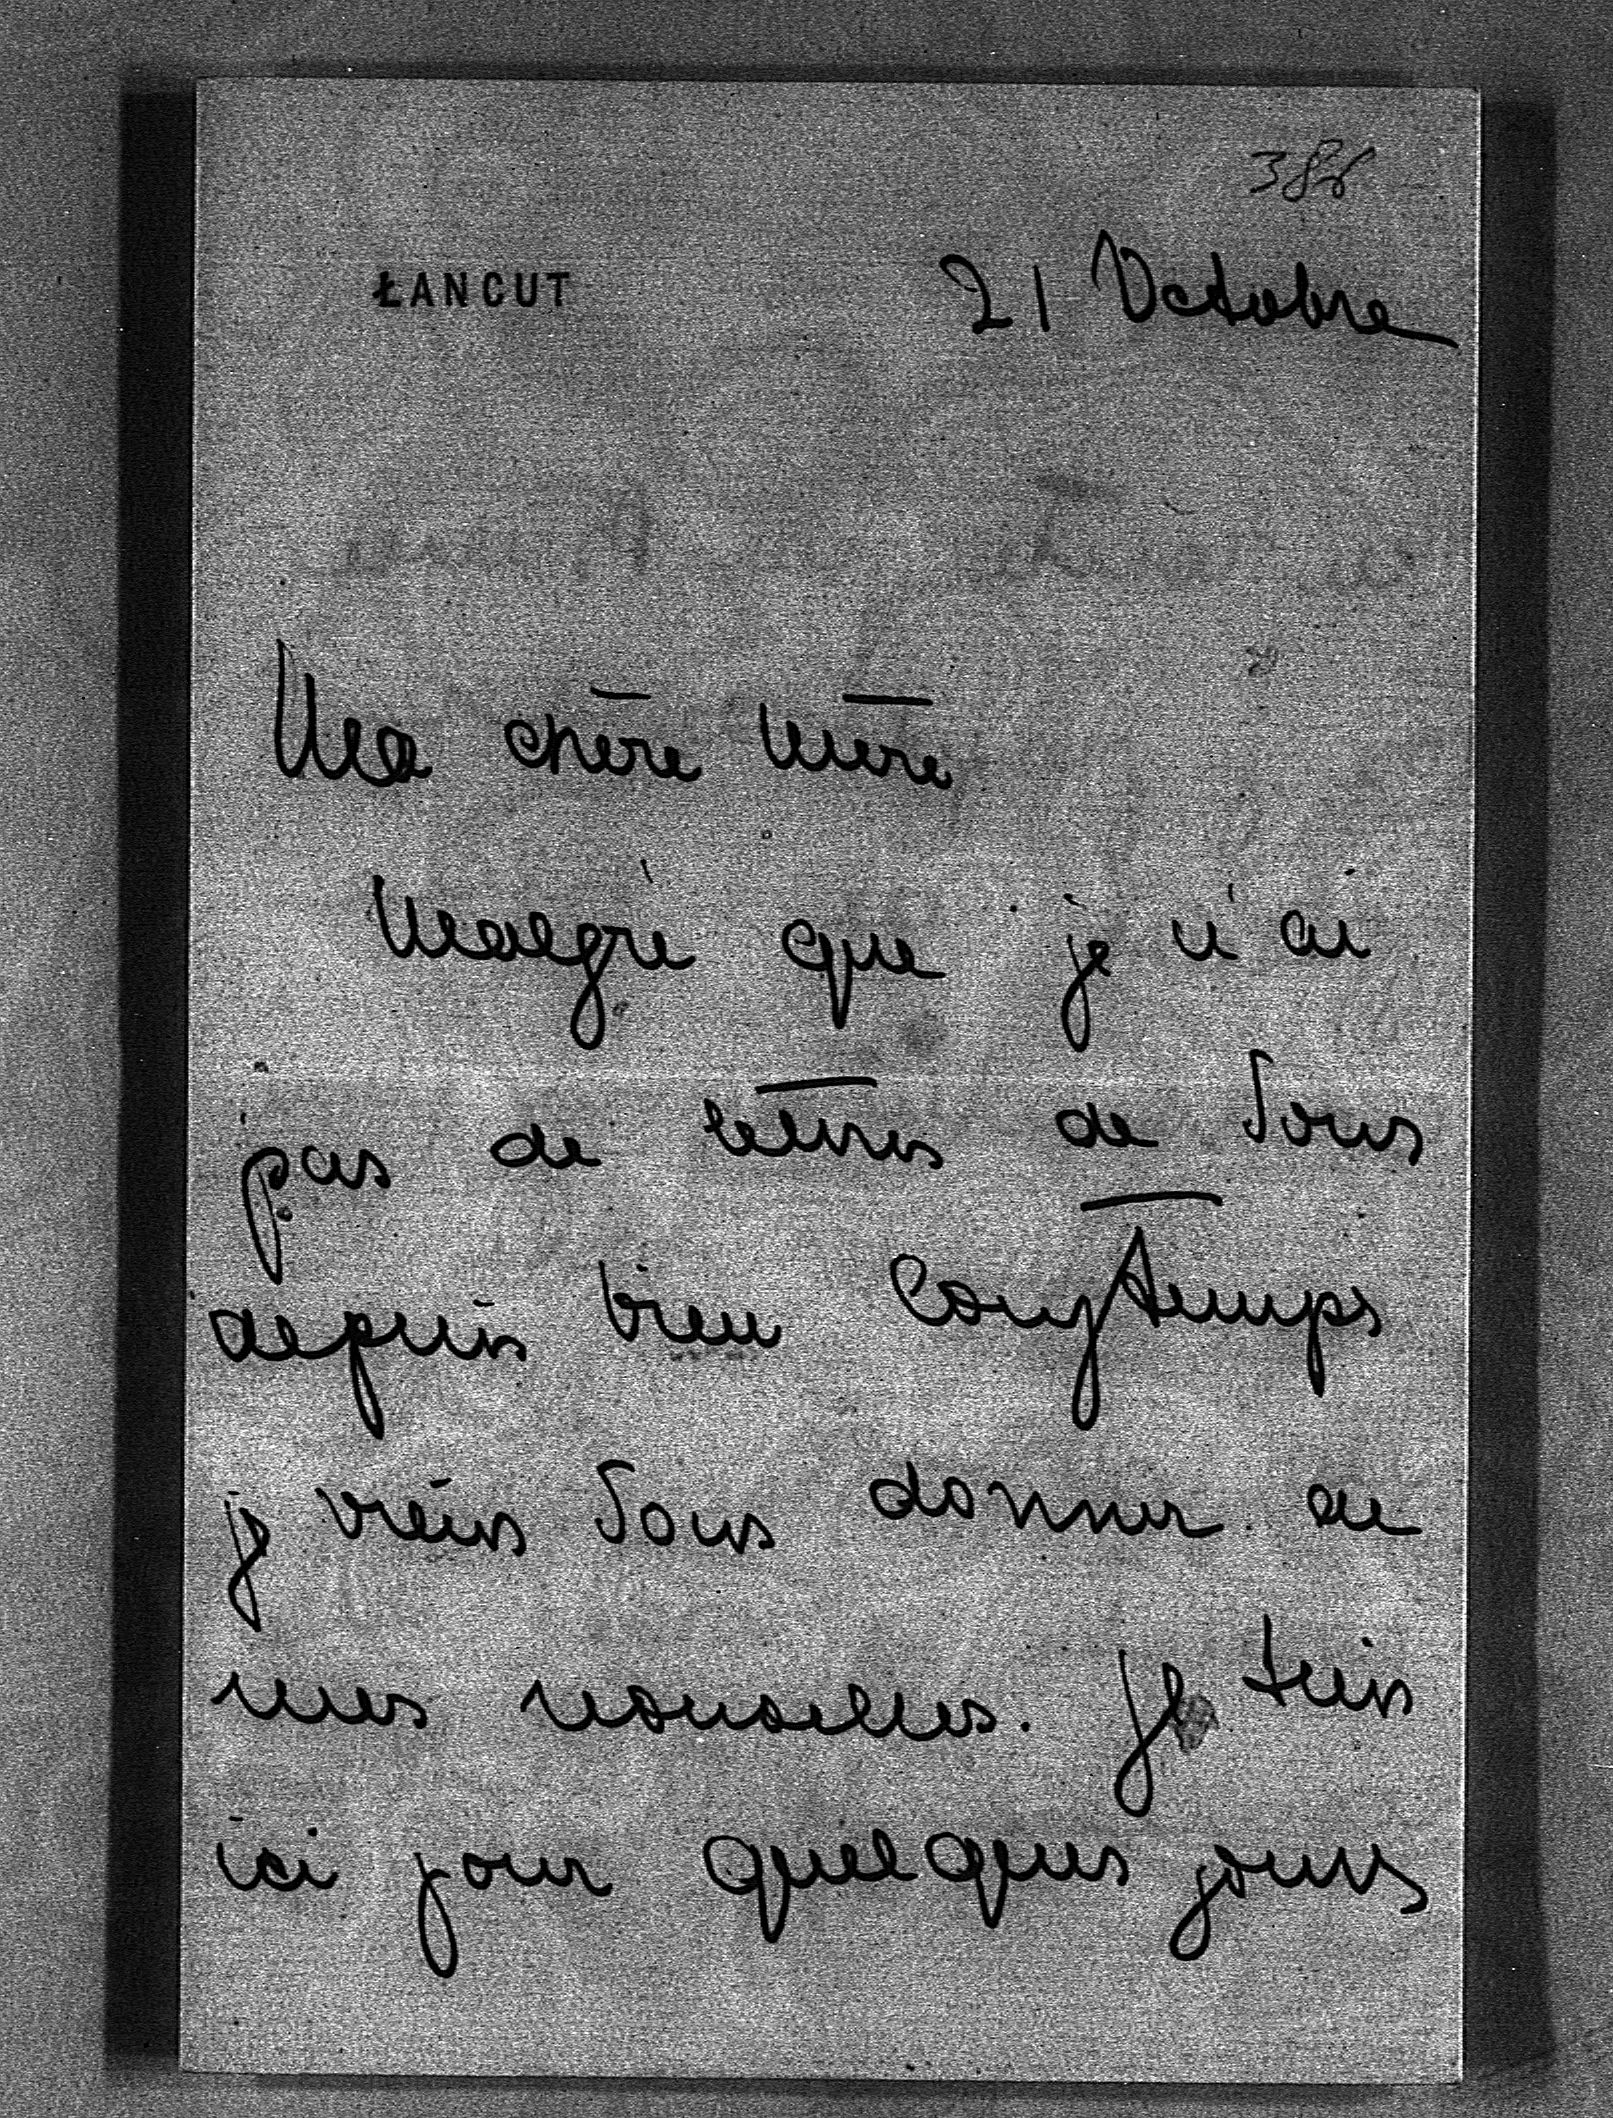 ŁANCUT
21 Octobre
Ma chère Mère
Malgré que je n'ai
pas de lettres de Vous
depuis bien longtemps
je viens Vous donner de
mes nouvelles. Je suis
ici pour quelques jours